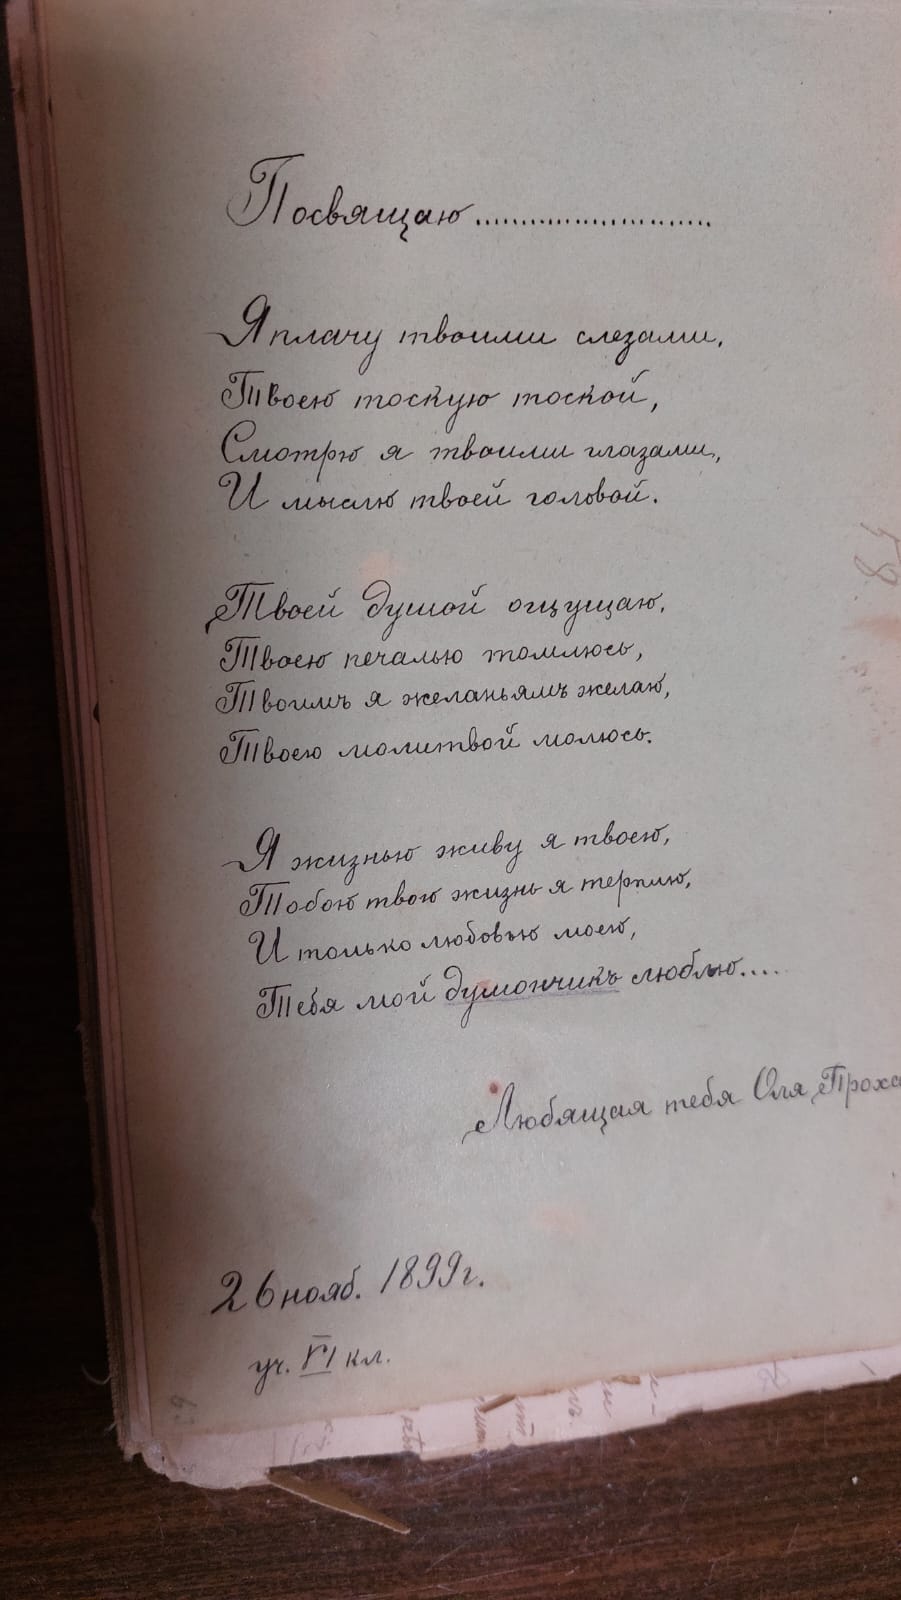 Посвящаю.........................
Я плачу твоими слезами,
Твоею тоскую тоской,
Смотрю я твоими глазами,
И мыслю твоей головой.
Твоей душой ощущаю,
Твоею печалью томлюсь,
Твоимъ я желаньямъ желаю,
Твоею молитвой молюсь.
Я жизнью живу я твоею,
Тобою твою жизнь я терплю,
И только любовью моею,
Тебя мой душончикъ люблю....
Любящая тебя Оля Проха
26 нояб. 1899 г.
уч. VI кл.